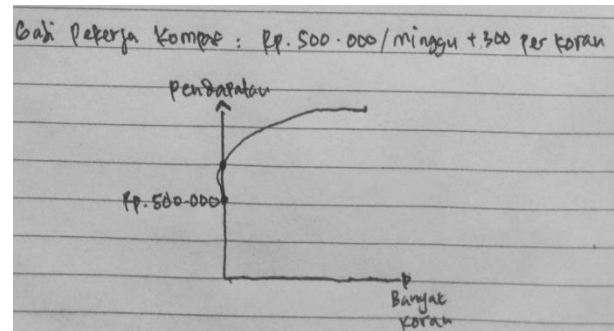 Gaji Pekerja Kompas : Rp. 500.000/minggu + 300 per koran
Pendapatan
Rp. 500.000
Banyak
koran